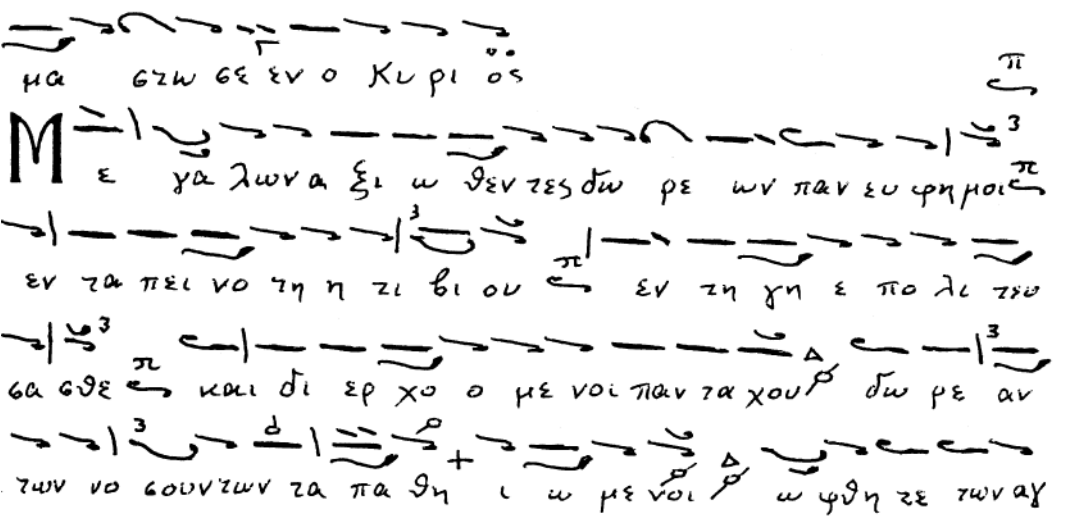 μα στω σε εν ο Κυ ρι ος
Μ ε γα λων α ξι ω θεν τες δω ρε ων παν ευ φη μοι
εν τα πει νο τη η τι βι ου εν τη γη ε πο λι τευ
σα σθε και δι ερ χο ο με νοι παν τα χου δω ρε αν
των νο σουντων τα πα θη ι ω με νοι ω φθη τε των αγ